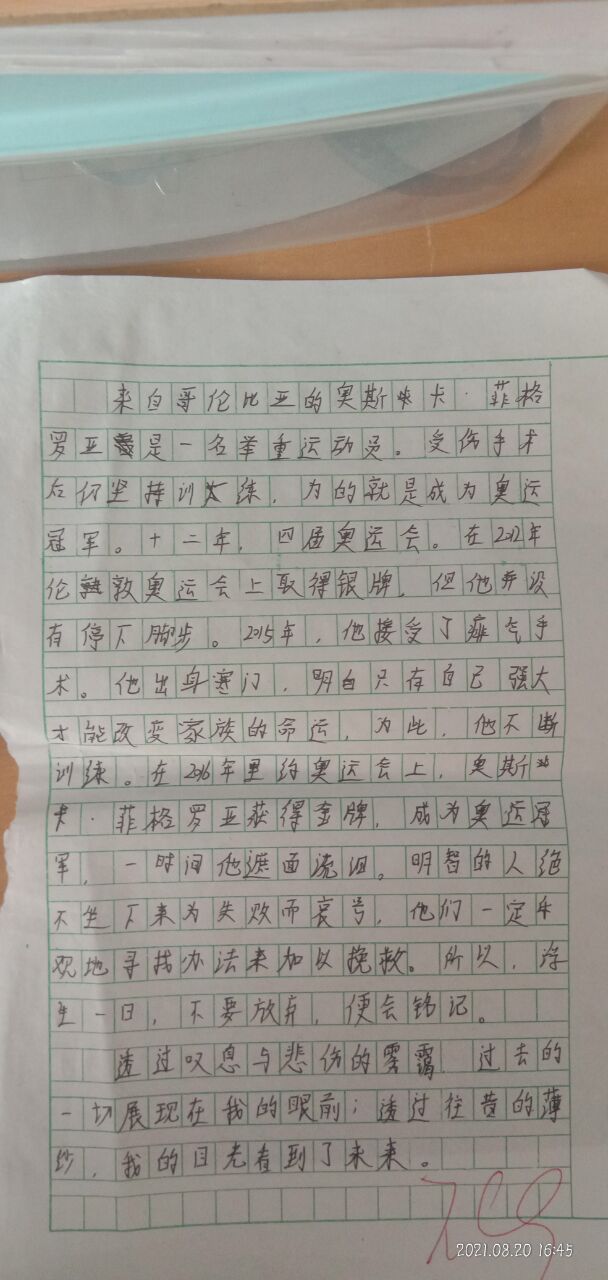 来自哥伦比亚的奥斯卡·菲格
罗亚是一名举重运动员。受伤手术
后仍坚持训练，为的就是成为奥运
冠军。十二年，四届奥运会。在2012年
伦敦奥运会上取得银牌，但他并没
有停下脚步。2015年，他接受了疝气手
术。他出身寒门，明白只有自己强大
才能改变家族的命运，为此，他不断
训练。在2016年里约奥运会上，奥斯
卡·菲格罗亚获得金牌，成为奥运冠
军，一时间他遮面流泪。明智的人绝
不坐下来为失败而哀号，他们一定乐
观地寻找办法来加以挽救。所以，浮
生一日，不要放弃，便会铭记。
透过叹息与悲伤的雾霭，过去的
一切展现在我的眼前；透过往昔的薄
纱，我的目光看到了未来。
2021.08.20 16:45